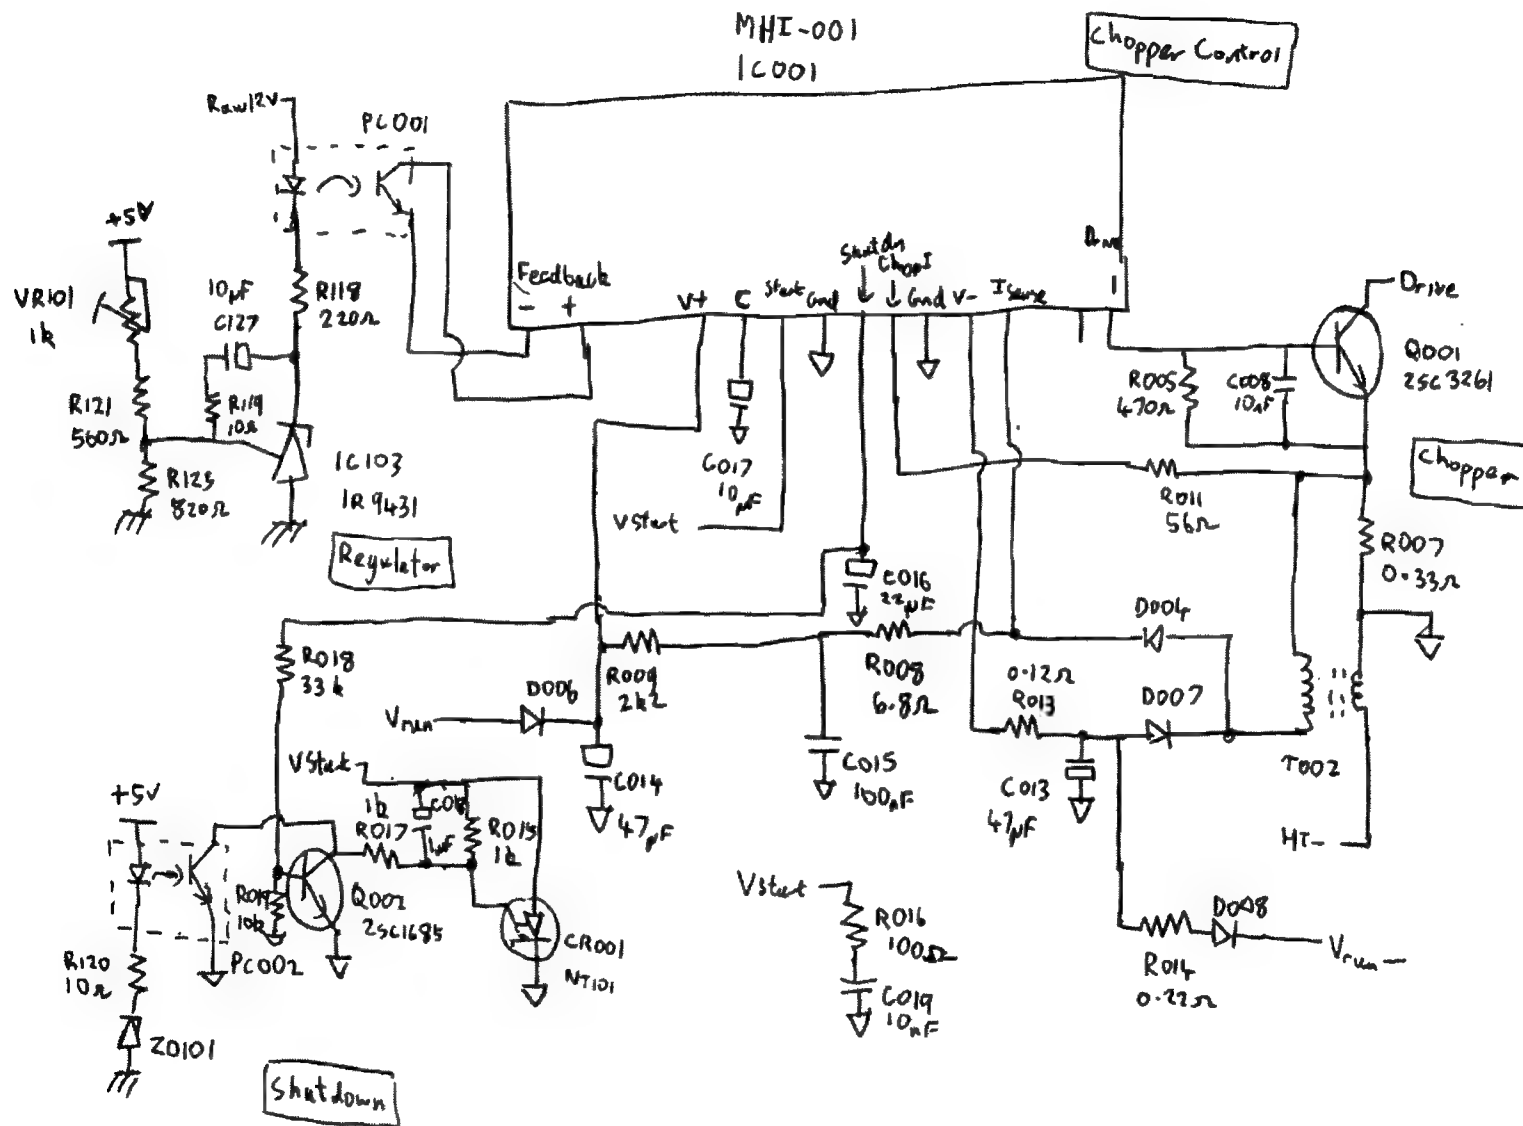 MHI-001
IC001
Chopper Control
Raw12V
PC001
+5V
VR101
1k
10µF
C127
R118
220Ω
R121
560Ω
R119
10Ω
R125
820Ω
IC103
IR9431
Regulator
Feedback
-
+
V+
C
Start
Gnd
Shutdn
ChopI
Gnd
V-
Isense
Drive
Drive
Q001
2SC3261
R005
470Ω
C008
10nF
Chopper
C017
10µF
VStart
R011
56Ω
R007
0.33Ω
C016
22µF
R018
33k
D004
R009
2k2
R008
6.8Ω
0.12Ω
R013
D007
D006
Vrun
T002
VStart
C014
47µF
C015
100nF
C013
47µF
HT-
+5V
1k
R017
1µF
R015
1k
R019
10k
Q002
2SC1685
CR001
NT101
PC002
R120
10Ω
ZD101
VStart
R016
100Ω
C019
10nF
D008
Vrun-
R014
0.22Ω
Shutdown